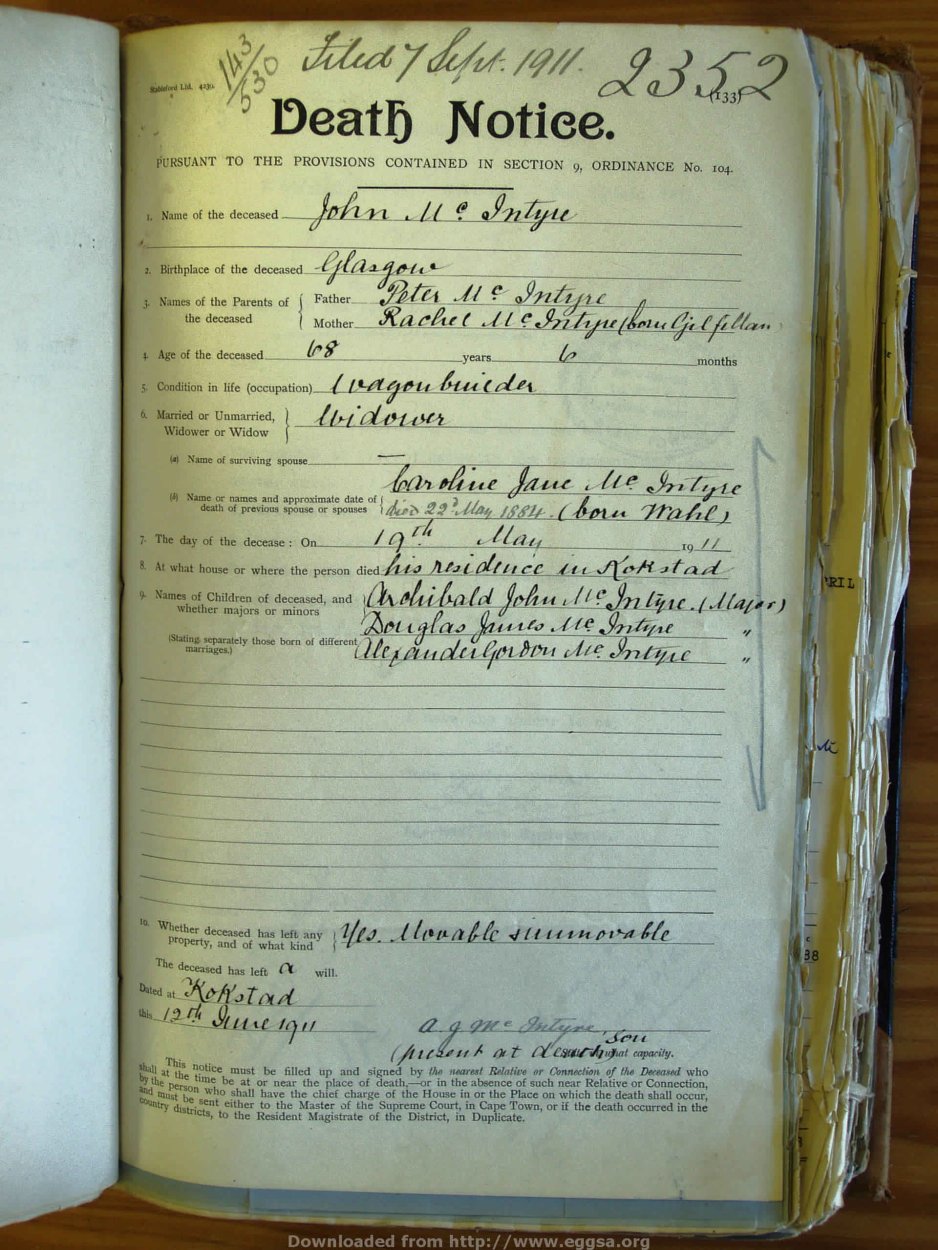 143/530 Filed 7 Sept. 1911. 2352
Stableford Ltd. 4239. (133)
Death Notice.
PURSUANT TO THE PROVISIONS CONTAINED IN SECTION 9, ORDINANCE No. 104.
1. Name of the deceased John Mc Intyre
2. Birthplace of the deceased Glasgow
3. Names of the Parents of the deceased { Father Peter Mc Intyre
Mother Rachel Mc Intyre (born Gilfillan
4. Age of the deceased 68 years 6 months
5. Condition in life (occupation) Wagonbuilder
6. Married or Unmarried, Widower or Widow } Widower
(a) Name of surviving spouse —
Caroline Jane Mc Intyre
(b) Name or names and approximate date of death of previous spouse or spouses { died 22d May 1884. (born Wahl)
7. The day of the decease: On 19th May 1911
8. At what house or where the person died his residence in Kokstad
9. Names of Children of deceased, and whether majors or minors } Archibald John Mc Intyre (Major)
Douglas James Mc Intyre "
(Stating separately those born of different marriages.) Alexander Gordon Mc Intyre "
10. Whether deceased has left any property, and of what kind } Yes. Movable & immovable
The deceased has left a will.
Dated at Kokstad
this 12th June 1911 a. g Mc Intyre, son
(present at death) what capacity.
This notice must be filled up and signed by the nearest Relative or Connection of the Deceased who
shall at the time be at or near the place of death,—or in the absence of such near Relative or Connection,
by the person who shall have the chief charge of the House in or the Place on which the death shall occur,
and must be sent either to the Master of the Supreme Court, in Cape Town, or if the death occurred in the
country districts, to the Resident Magistrate of the District, in Duplicate.
RIL
38
Downloaded from http://www.eggsa.org